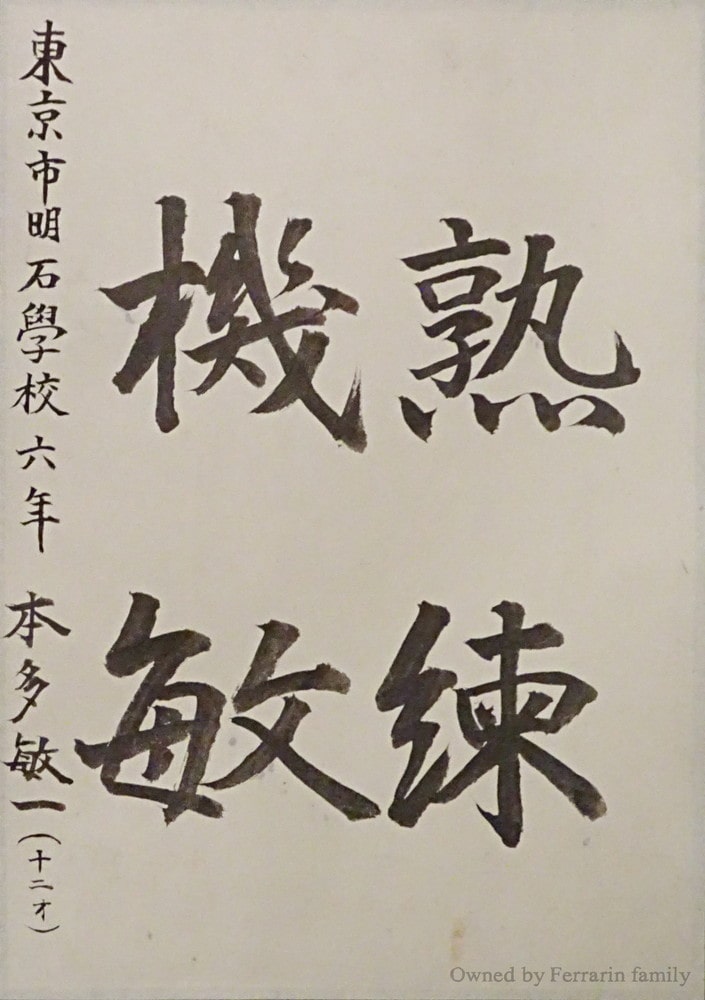 熟練
機敏
東京市明石學校六年 本多敏一(十二才)
Owned by Ferrarin family